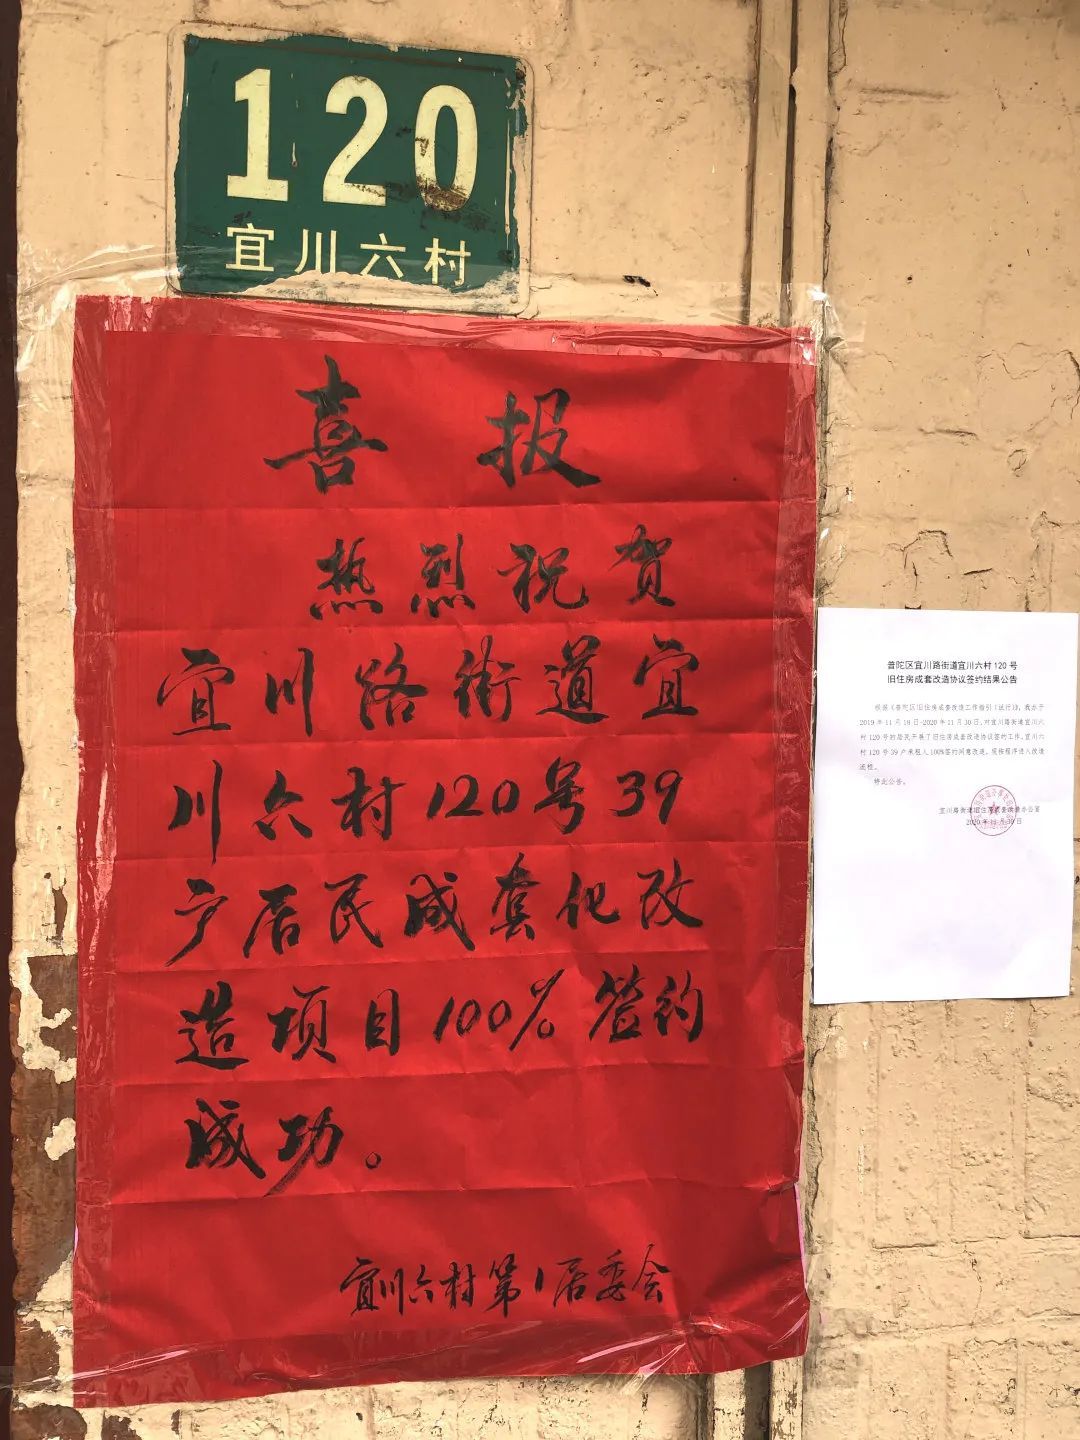 120
宜川六村
喜报
热烈祝贺
宜川路街道宜
川六村120号39
户居民成套化改
造项目100%签约
成功。
宜川六村第1居委会
普陀区宜川路街道宜川六村120号
旧住房成套改造协议签约结果公告
根据《普陀区旧住房成套改造工作指引(试行)》，我办于
2019年11月18日-2020年11月30日，对宜川路街道宜川六
村120号的居民开展了旧住房成套改造协议签约工作。宜川六
村120号39户承租人100%签约同意改造，现按程序进入改造
流程。
特此公告。
宜川路街道旧住房成套改造办公室
2020年11月30日